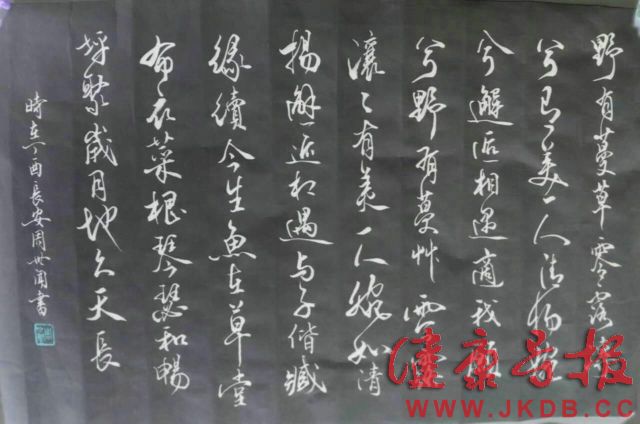 野有蔓草零露
兮有美一人清揚婉
兮邂逅相遇適我願
兮野有蔓艸零露
瀼〻有美一人婉如清
揚邂逅相遇与子偕臧
緣續今生魚在草堂
布衣菜根琴瑟和暢
聚歲月地久天長
時在丁酉長安周世聞書
健康导报
WWW.JKDB.CC